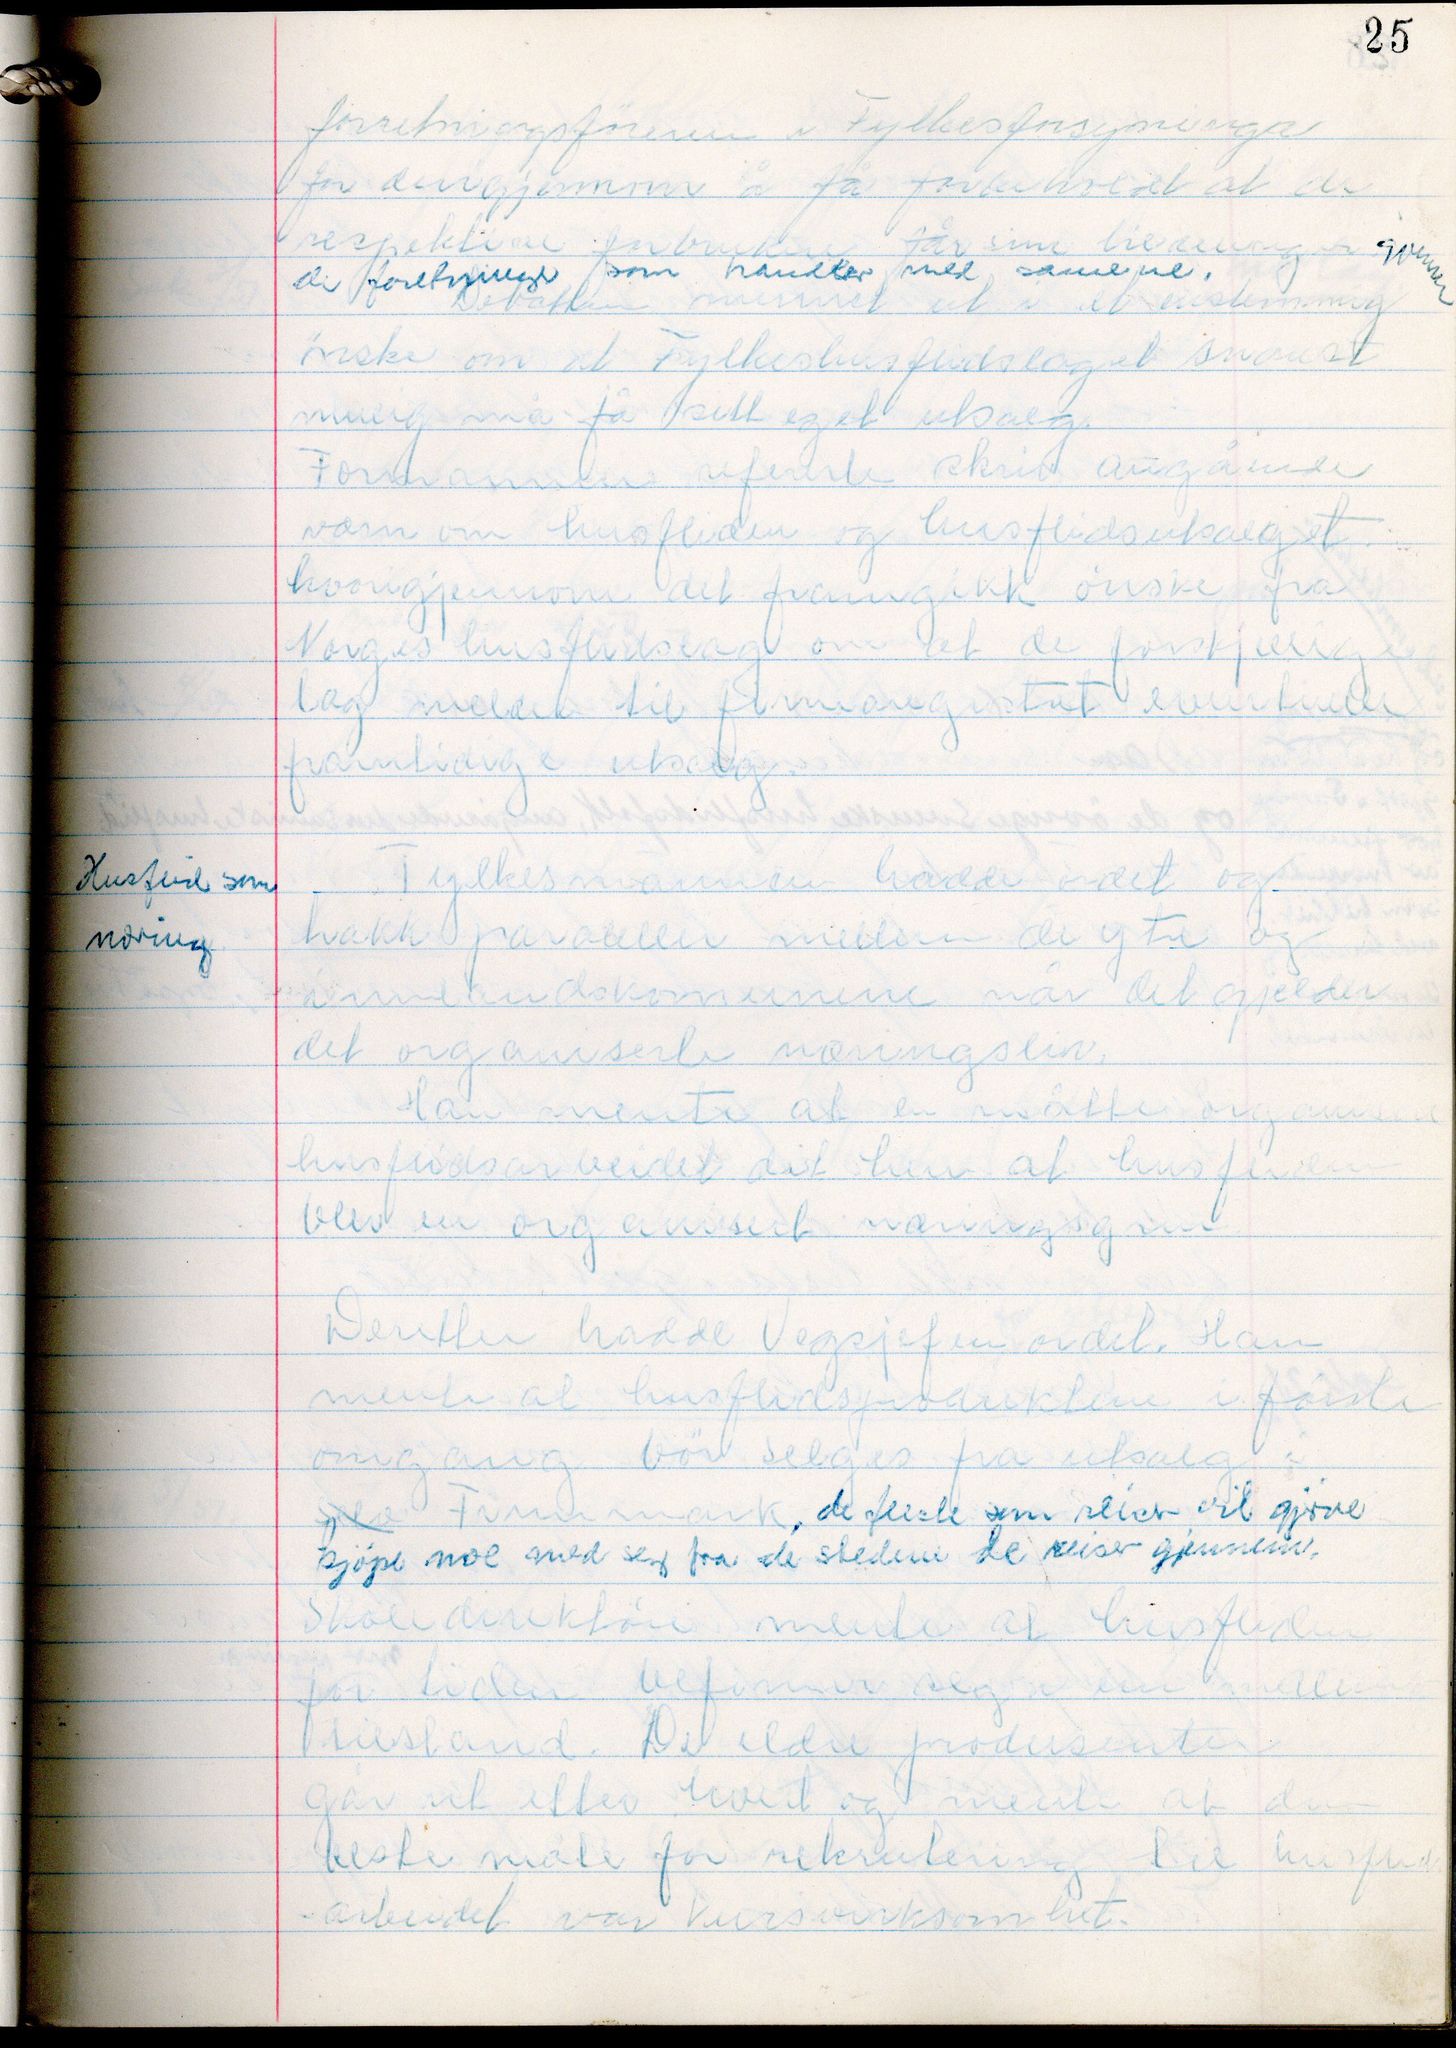 25
forretningsföreren i Fylkesforsyninga
for derigjennom å få forbeholdt at de
respektive forbrukere får sine tildelinger gjennem
de forettninger som handler med samene.
Debatten munnet ut i et enstemmig
önske om at Fylkeshusflidslaget snarest
mulig må få sitt eget utsalg.
Formannen refererte skriv angående
værn om husfliden og husflidsutsalget
hvorigjennom det framgikk önske fra
Norges husflidslag om at de forskjellige
lag melder til firmaregistret eventuelle
framtidige utsalg.
Husflid som
næring.
Fylkesmannen hadde ordet og
trakk paraleller mellem de ytre og
innlandskomunene når det gjelder
det organiserte næringsliv.
Han mente at en måtte organisere
husflidsarbeidet dit hen at husfliden
blev en organisert næringsgren
Deretter hadde Vegsjefen ordet. Han
mente at husflidsproduktene i förste
omgang bör selges fra utsalg i
Finnmark, de fleste som reiser vil gjerne
kjöpe noe med seg fra de stedene de reiser gjennem.
Skoledirektören mente at husfliden
for tiden befinner seg i en mellem
tilstand. De eldre produsenter
går ut etter hvert og mente at den
beste måte for rekrutering til husflids
arbeidet var kursvirksomhet.